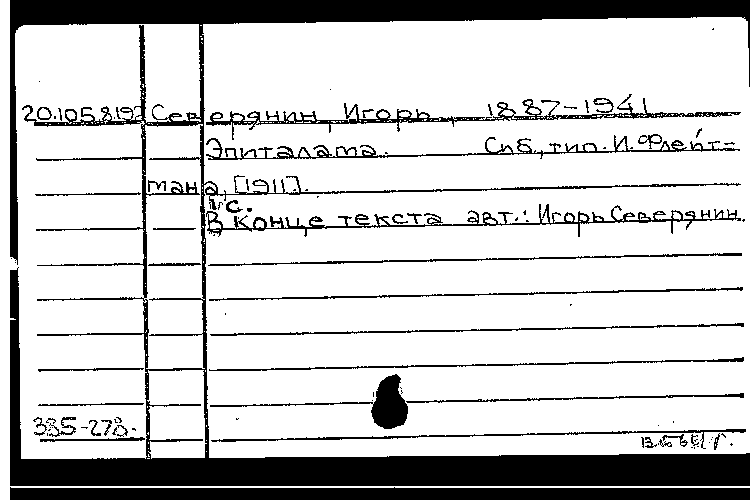 20.105.8.192 Северянин, Игорь, 1887-1941
Эпиталама. Спб., тип. И. Флейт=
мана, [1911].
1 с.
В конце текста авт.: Игорь Северянин.
385-278.